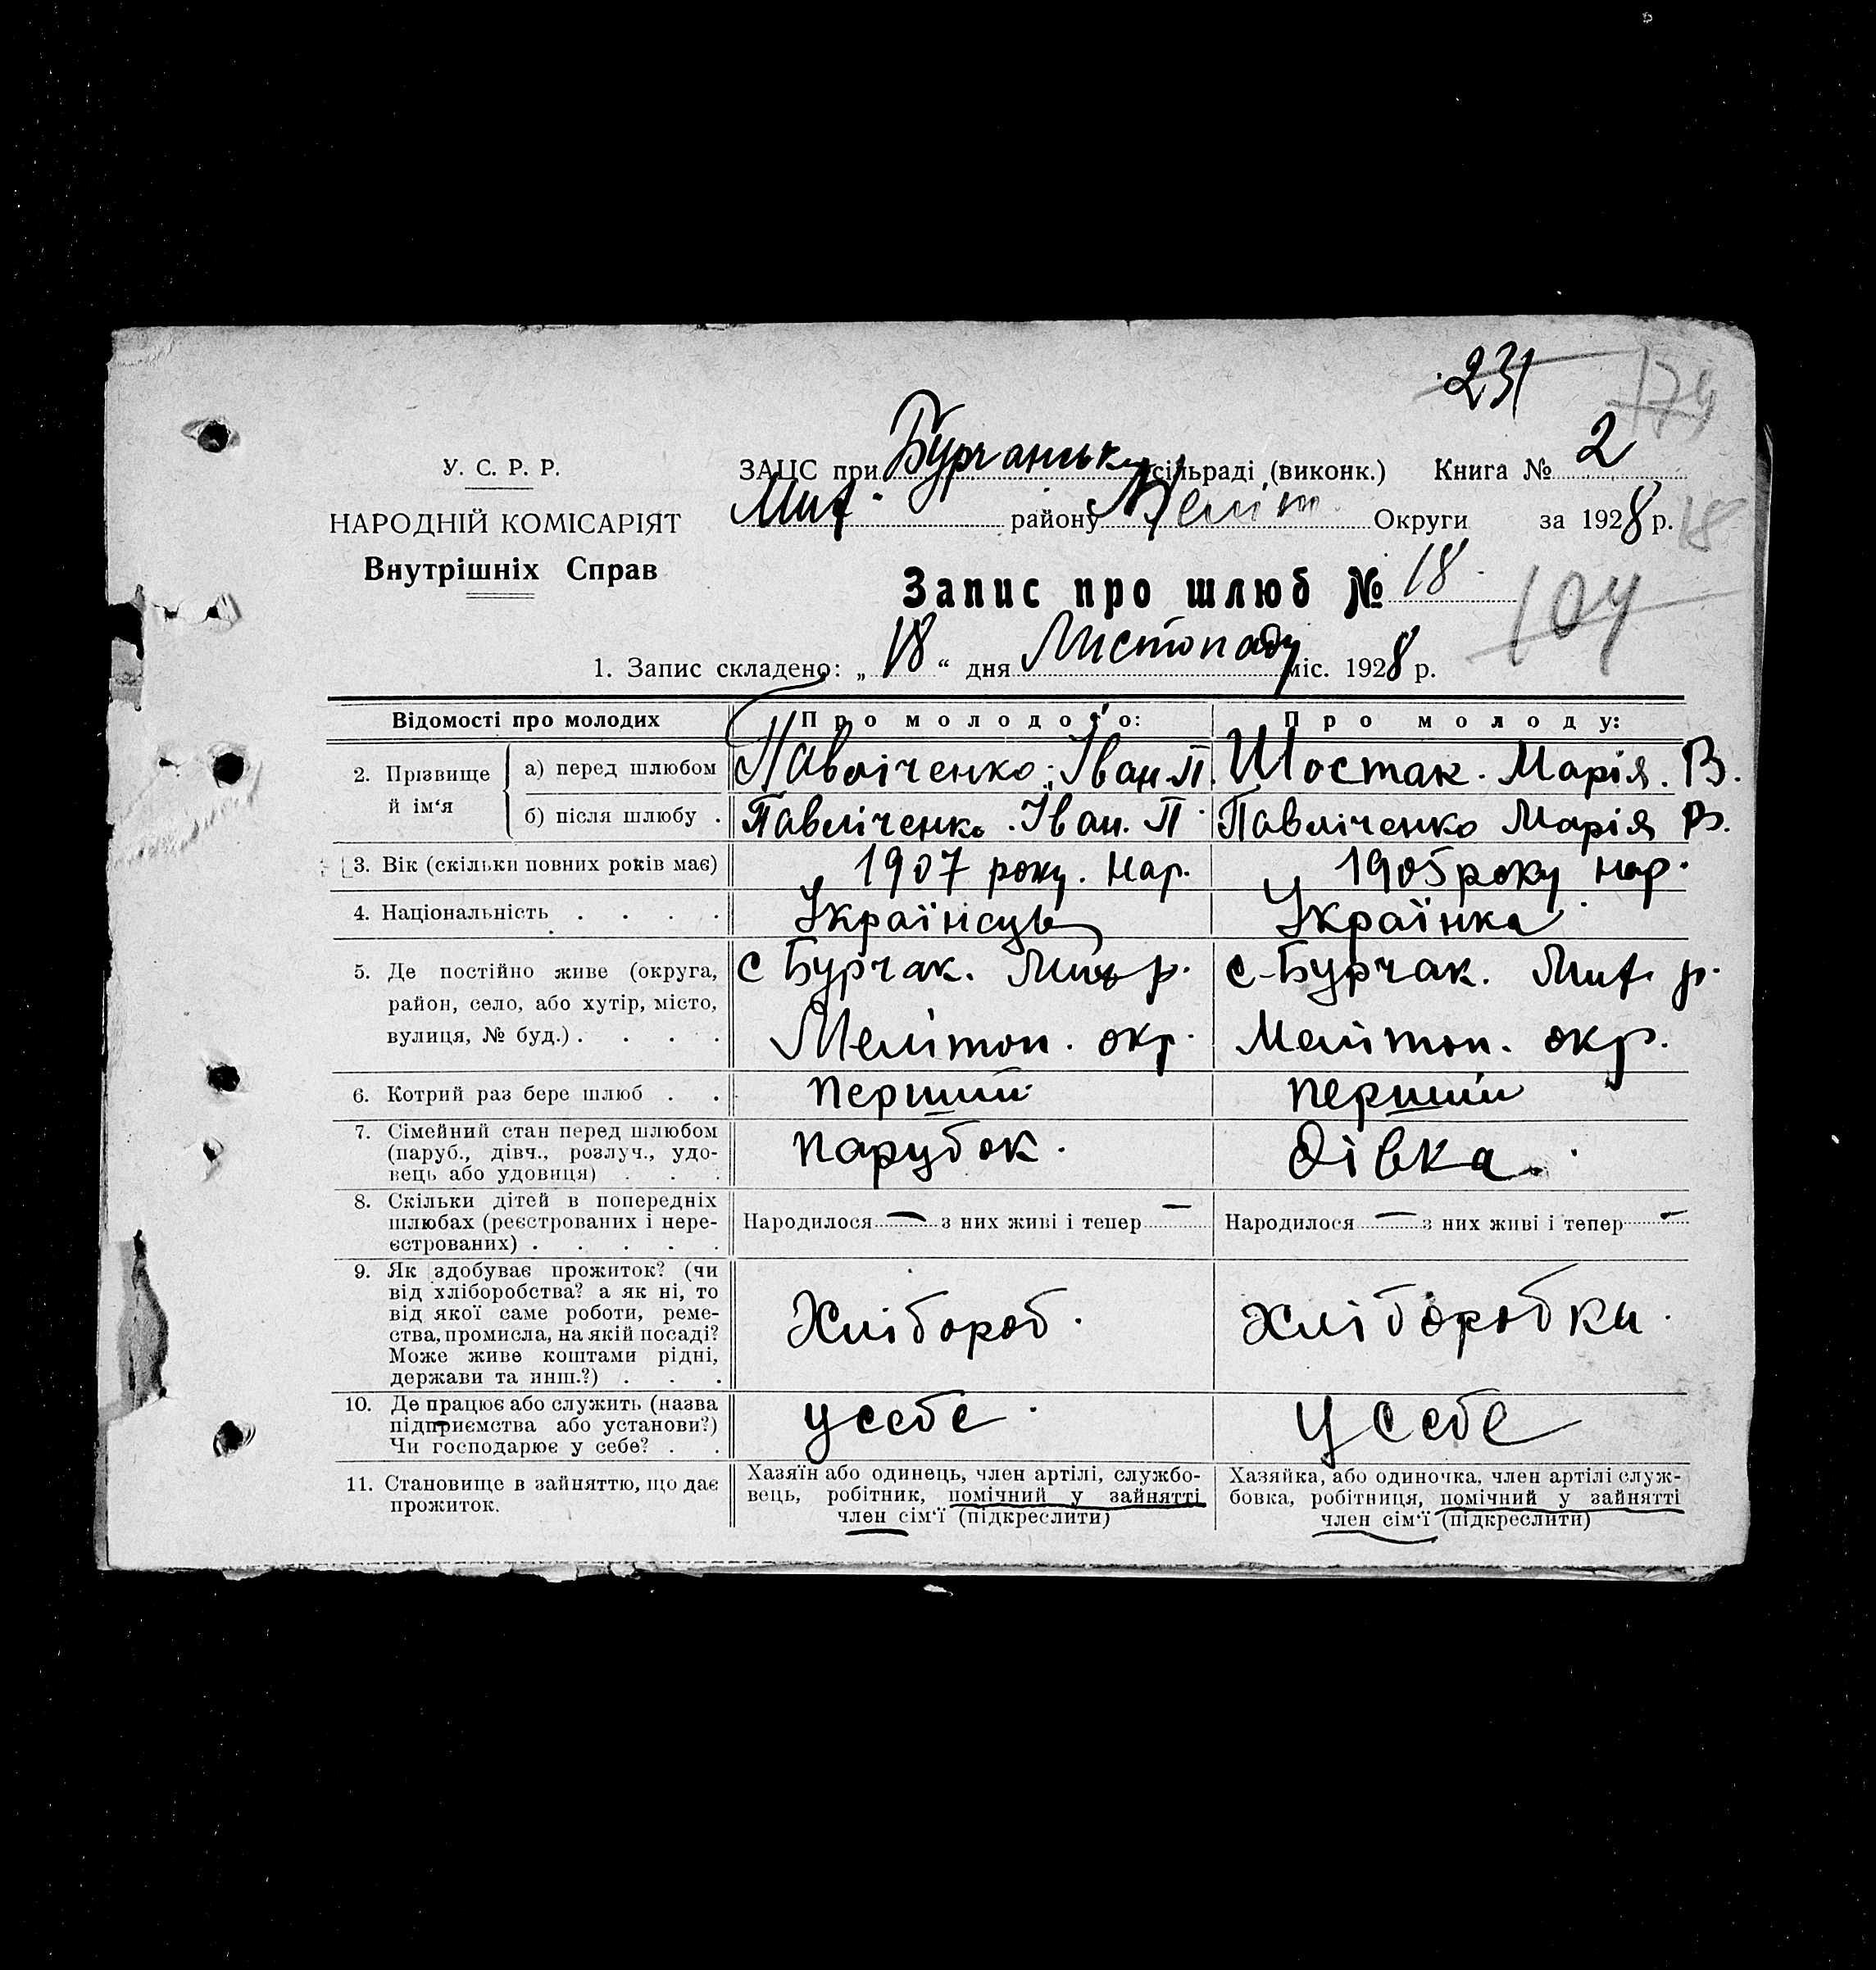 231
174
У. С. Р. Р.
НАРОДНІЙ КОМІСАРІЯТ
Внутрішніх Справ
ЗАЦС при Бурчанську сільраді (виконк.) Книга № 2
Мих. району Меліт. Округи за 1928 р. 18
Запис про шлюб № 18
104
1. Запис складено: „ 18 “ дня Листопаду міс. 1928 р.
Відомості про молодих
Про молодого:
Про молоду:
2. Прізвище й ім‘я
а) перед шлюбом
Павліченко Іван П.
Шостак. Марія. В.
б) після шлюбу .
Павліченко. Іван. П.
Павліченко Марія В.
3. Вік (скільки повних років має)
1907 року. нар.
1905 року нар.
4. Національність . . . .
Українець
Українка
5. Де постійно живе (округа,
район, село, або хутір, місто,
вулиця, № буд.) . . . .
с Бурчак. Мих р.
Мелітоп. окр.
с-Бурчак. Мих. р.
Мелітоп. окр.
6. Котрий раз бере шлюб . .
перший
перший
7. Сімейний стан перед шлюбом
(паруб., дівч., розлуч., удо-
вець або удовиця) . . .
парубок.
дівка.
8. Скільки дітей в попередніх
шлюбах (реєстрованих і нере-
єстрованих) . . . . .
Народилося — з них живі і тепер —
Народилося — з них живі і тепер —
9. Як здобуває прожиток? (чи
від хліборобства? а як ні, то
від якої саме роботи, реме-
ства, промисла, на якій посаді?
Може живе коштами рідні,
держави та инш.?) . . .
Хлібороб.
хліборобки.
10. Де працює або служить (назва
підприємства або установи?)
Чи господарює у себе? . .
усебе.
усебе
11. Становище в зайняттю, що дає
прожиток.
Хазяїн або одинець, член артілі, службо-
вець, робітник, помічний у зайнятті
член сім‘ї (підкреслити)
Хазяйка, або одиночка, член артілі служ-
бовка, робітниця, помічний у зайнятті
член сім‘ї (підкреслити)